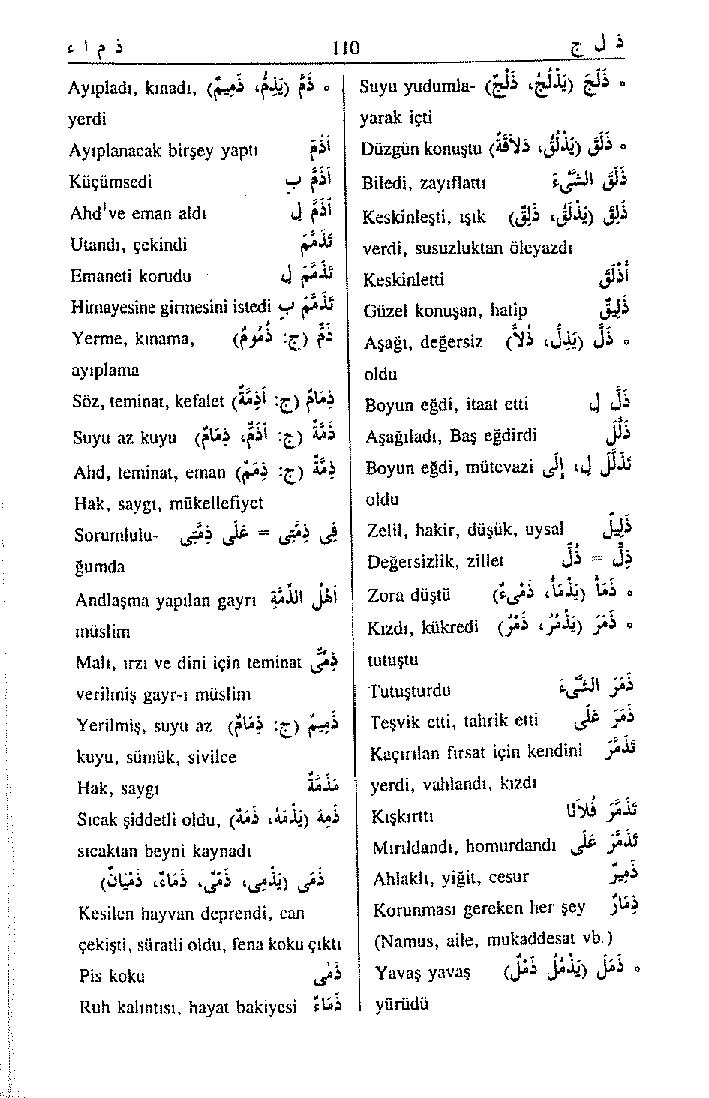 ذ ل ج 110 ذ م ا ء
• ذَلَجَ (يَذْلُجُ، ذَلْجٌ) Suyu yudumla-
yarak içti
• ذَلَقَ (يَذْلُقُ، ذَلَاقَةٌ) Düzgün konuştu
ذَلَقَ الشَّيْءَ Biledi, zayıflattı
ذَلِقَ (يَذْلَقُ، ذَلَقٌ) Keskinleşti, ışık
verdi, susuzluktan öleyazdı
أَذْلَقَ Keskinletti
ذَلِيقٌ Güzel konuşan, hatip
• ذَلَّ (يَذِلُّ، ذُلًّا) Aşağı, değersiz
oldu
ذَلَّ لِ Boyun eğdi, itaat etti
ذَلَّلَ Aşağıladı, Baş eğdirdi
تَذَلَّلَ لِ، إِلَى Boyun eğdi, mütevazi
oldu
ذَلِيلٌ Zelil, hakir, düşük, uysal
ذِلٌّ = ذُلٌّ Değersizlik, zillet
• ذَمَأَ (يَذْمَأُ، ذَمْيءٌ) Zora düştü
• ذَمَرَ (يَذْمُرُ، ذَمْرٌ) Kızdı, kükredi
tutuştu
ذَمَرَ الشَّيْءَ Tutuşturdu
ذَمَرَ عَلَى Teşvik etti, tahrik etti
تَذَمَّرَ Kaçırılan fırsat için kendini
yerdi, vahlandı, kızdı
تَذَمَّرَ فُلَانًا Kışkırttı
تَذَمَّرَ عَلَى Mırıldandı, homurdandı
ذَمِيرٌ Ahlaklı, yiğit, cesur
ذِمَارٌ Korunması gereken her şey
(Namus, aile, mukaddesat vb.)
• ذَمَلَ (يَذْمُلُ ذَمْلٌ) Yavaş yavaş
yürüdü
• ذَمَّ (يَذُمُّ، ذَمِيمٌ) Ayıpladı, kınadı,
yerdi
أَذَمَّ Ayıplanacak birşey yaptı
أَذَمَّ بِ Küçümsedi
أَذَمَّ لِ Ahd've eman aldı
تَذَمَّمَ Utandı, çekindi
تَذَمَّمَ لِ Emaneti korudu
تَذَمَّمَ بِ Himayesine girmesini istedi
ذَمٌّ (ج: ذُمُومٌ) Yerme, kınama,
ayıplama
ذِمَامٌ (ج: أَذِمَّةٌ) Söz, teminat, kefalet
ذَمَّةٌ (ج: أَذُمٌّ، ذِمَامٌ) Suyu az kuyu
ذِمَّةٌ (ج: ذِمَمٌ) Ahd, teminat, eman
Hak, saygı, mükellefiyet
فِي ذِمَّتِي = عَلَى ذِمَّتِي Sorumlulu-
ğumda
أَهْلُ الذِّمَّةِ Andlaşma yapılan gayrı
müslim
ذِمِّيٌّ Malı, ırzı ve dini için teminat
verilmiş gayr-ı müslim
ذَمِيمٌ (ج: ذِمَامٌ) Yerilmiş, suyu az
kuyu, sümük, sivilce
مَذَمَّةٌ Hak, saygı
ذَمِهَ (يَذْمَهُ، ذَمَهٌ) Sıcak şiddetli oldu,
sıcaktan beyni kaynadı
ذَمَى (يَذْمِي، ذَمْيٌ، ذَمَاءٌ، ذَمَيَانٌ)
Kesilen hayvan deprendi, can
çekişti, süratli oldu, fena koku çıktı
ذَمًى Pis koku
ذَمَاءٌ Ruh kalıntısı, hayat bakiyesi